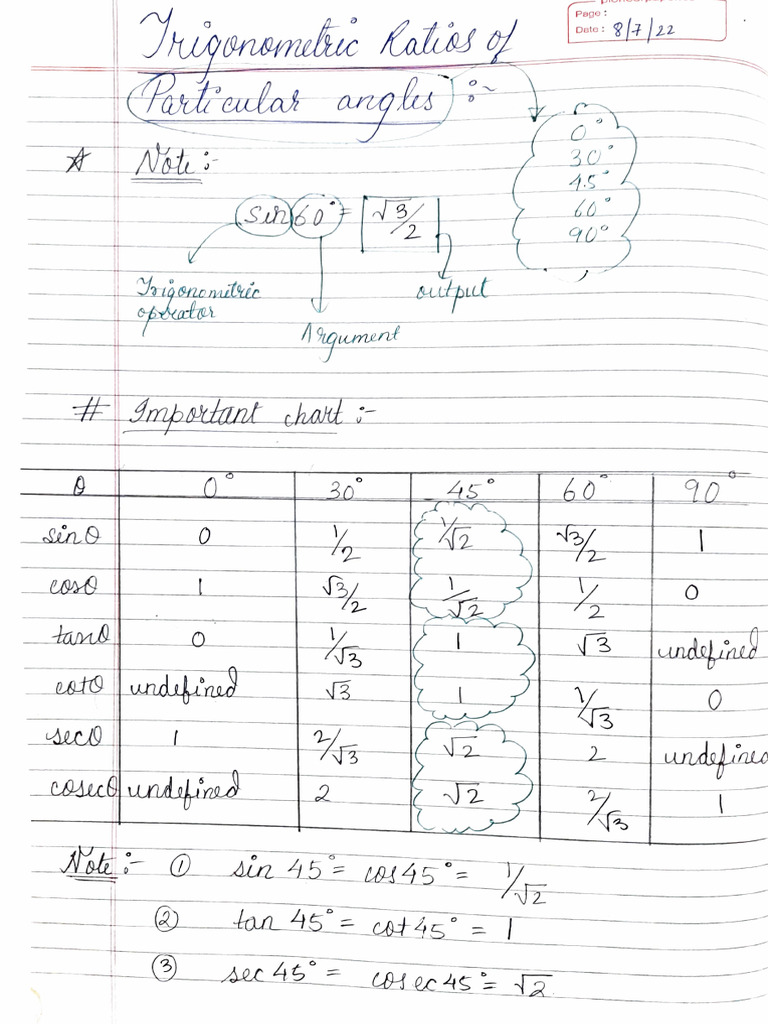 Page :
Date : 8/7/22
Trigonometric Ratios of
Particular angles :-
0°
30°
45°
60°
90°
☆ Note :-
sin 60° = √3/2
Trigonometric operator
Argument
output
# Important chart :-
θ 0° 30° 45° 60° 90°
sinθ 0 1/2 1/√2 √3/2 1
cosθ 1 √3/2 1/√2 1/2 0
tanθ 0 1/√3 1 √3 undefined
cotθ undefined √3 1 1/√3 0
secθ 1 2/√3 √2 2 undefined
cosecθ undefined 2 √2 2/√3 1
Note :- ① sin 45° = cos 45° = 1/√2
② tan 45° = cot 45° = 1
③ sec 45° = cosec 45° = √2